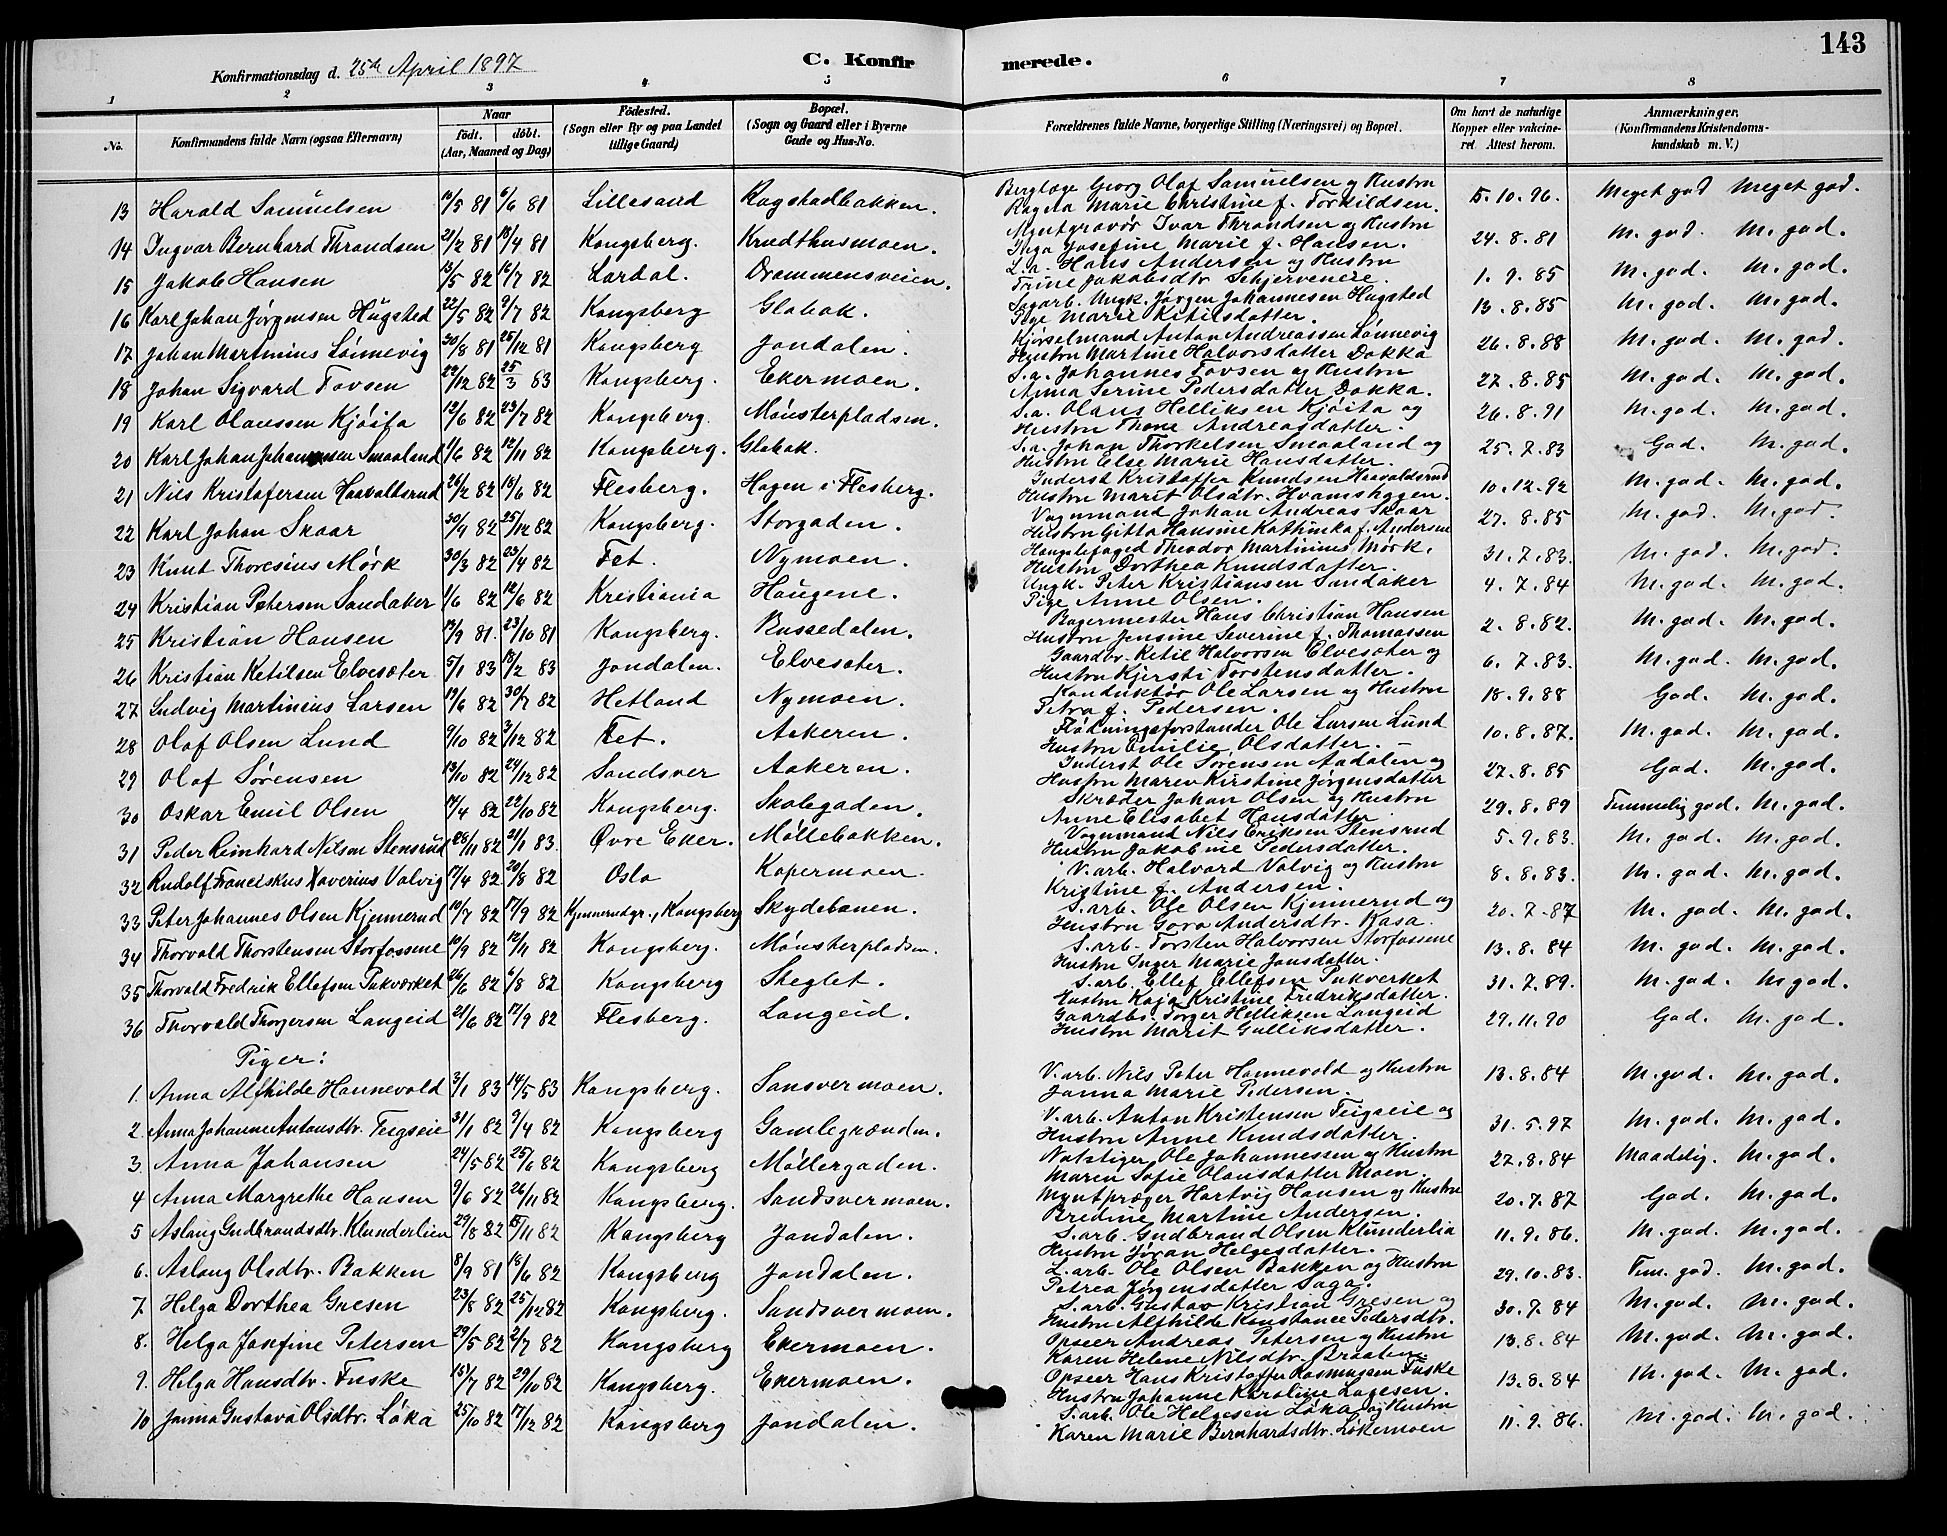 143
Konfirmationsdag d. 25de April 1897
C. Konfirmerede.
1 2 3 4 5 6 7 8
No. Konfirmandens fulde Navn (ogsaa Efternavn) Naar født. døbt. (Aar, Maaned og Dag) Fødested. (Sogn eller By og paa Landet tillige Gaard) Bopæl. (Sogn og Gaard eller i Byerne Gade og Hus-No. Forældrenes fulde Navne, borgerlige Stilling (Næringsvei) og Bopæl. Om havt de naturlige Kopper eller vakcineret Attest herom. Anmærkninger. (Konfirmandens Kristendomskundskab m. V.)
13 Harald Samuelsen 11/5 81 6/6 81 Lillesand Ragstadbakken. Georg Olaf Samuelsen og Hustru Ragna Marie Christine f. Torkildsen. 5.10.96. Meget god Meget god.
14 Ingvar Bernhard Thrandsen 21/2 81 18/4 81 Kongsberg. Krudthusmoen. Myntgravør Ivar Thrandsen og Hustru Inga Josefine Marie f. Hansen. 24.8.81 M. god. M. god.
15 Jakob Hansen 13/5 82 16/7 82 Lardal. Drammensveien. L.a. Hans Andersen og Hustru Trine Jakobsdtr. Skjervenere. 1.9.85 M. god. M. god.
16 Karl Johan Jørgensen Hugsted 22/5 82 9/7 82 Kongsberg Glabak. Sagarb. Ungk. Jørgen Johannesen Hugsted Pige Marie Ketilsdatter. 13.8.85 M. god. M. god.
17 Johan Martinius Lønnevig 30/8 81 25/12 81 Kongsberg Jondalen. Kjørselmand Anton Andreassen Lønnevig Hustru Martine Halvorsdatter Dokka 26.8.88 M. god. M. god.
18 Johan Sigvard Tovsen 22/12 82 25/3 83 Kongsberg. Ekermoen. S.a. Johannes Tovsen og Hustru Anna Serine Pedersdatter Dokka. 27.8.85 M. god. M. god.
19 Karl Olaussen Kjøita 12/6 82 23/7 82 Kongsberg. Mønsterpladsen. S.a. Olaus Helliksen Kjøita og Hustru Thone Andreasdatter. 26.8.91 M. god. M. god.
20 Karl Johan Johannesen Smaaland 1/6 82 12/11 82 Kongsberg. Glabak. S.a. Johan Thorkelsen Smaaland og Hustru Else Marie Hansdatter. 25.7.83 God. M. god.
21 Nils Kristofersen Haavaldsrud 26/2 82 18/6 82 Flesberg. Hagen i Flesberg. Inderst Kristoffer Knudsen Haavaldsrud Hustru Marit Olsdtr. Hvamshagen. 10.12.92 M. god. M. god.
22 Karl Johan Skaar 30/9 82 25/12 82 Kongsberg. Storgaden. Vognmand Johan Andreas Skaar Hustru Gitta Hansine Kathinka f. Andersen 27.8.85 M. god. M. god
23 Knut Thoresius Mørk 30/3 82 23/4 82 Fet. Nymoen. Theodor Martinius Mørk. Hustru Dorthea Knudsdatter. 31.7.83. M. god. M. god.
24 Kristian Petersen Sandaker 1/6 82 12/6 82 Kristiania Haugene. Ungk. Peter Kristiansen Sandaker Pige Anne Olsen. 4.7.84 M. god. M. god.
25 Kristian Hansen 17/9 81. 23/10 81 Kongsberg. Bussedalen. Bagermester Hans Christian Hansen Hustru Jensine Severine f. Thomassen 2.8.82. M. god. M. god.
26 Kristian Ketilsen Elvesæter 5/1 83 18/2 83 Jondalen. Elvesæter. Gaardbr. Ketil Halvorsen Elvesæter og Hustru Kjersti Torstensdatter. 6.7.83. M. god. M. god.
27 Ludvig Martinius Larsen 19/6 82 30/7 82 Hetland Nymoen. Konduktør Ole Larsen og Hustru Petra f. Pedersen. 18.9.88 God. M. god.
28 Olaf Olsen Lund 9/10 82 3/12 82 Fet. Aakeren. Fløtningsforstander Ole Larsen Lund Hustru Emilie Olsdatter. 10.8.87. M. god. M. god.
29 Olaf Sørensen 13/10 82 24/12 82 Sandsver Aakeren. Inderst Ole Sørensen Aadalen og Hustru Maren Kirstine Jørgensdatter 27.8.85 God. M. god.
30 Oskar Emil Olsen 17/4 82 22/10 82 Kongsberg. Skolegaden. Skræder Johan Olsen og Hustru Anne Elisabet Hansdatter. 29.8.89 Temmelig god. M. god.
31 Peder Reinhard Nilsen Stensrud 28/11 82 21/1 83. Øvre Eker. Møllebakken. Vognmand Nils Eriksen Stensrud Hustru Jakobine Pedersdatter. 5.9.83. M. god. M. god.
32 Rudolf Franciskus Xaverius Valvig 17/4 82 20/8 82 Oslo Kapermoen. V. arb. Halvard Valvig og Hustru Kristine f. Andersen. 8.8.83. M. god. M. god.
33 Peter Johannes Olsen Kjennerud 10/7 82 17/9 82 Kjennerudgr., Kongsberg Skydebanen. S. arb. Ole Olsen Kjennerud og Hustru Goro Andersdtr. Kasa. 20.7.87 M. god. M. god.
34 Thorvald Thorstensen Storfossene 10/9 82 12/11 82 Kongsberg. Mønsterpladsen. S. arb. Torsten Halvorsen Storfossene Hustru Inger Marie Jonsdatter. 13.8.84 M. god. M. god.
35 Thorvald Fredrik Ellefsen Pukværket 26/6 82 6/8 82 Kongsberg Steglet. S. arb. Ellef Ellefsen Pukverket Hustru Kaja Kristine Fredriksdatter. 31.7.89. M. god. M. god.
36 Thorvald Thorgersen Langeid 21/6 82 17/9 82 Flesberg. Langeid. Gaardbr. Torger Helliksen Langeid Hustru Marit Gulliksdatter. 29.11.90 God. M. god.
Piger:
1. Anna Alfhilde Hannevold 3/1 83 14/5 83 Kongsberg. Sansvermoen. V. arb. Nils Peter Hannevold og Hustru Janna Marie Pedersen. 13.8.84 M. god. M. god.
2. Anna Johanne Antonsdtr. Teigseie 31/1 82 9/4 82 Kongsberg Gamlegrænden. V. arb. Anton Kristensen Teigseie og Hustru Anne Knudsdatter. 31.5.97 M. god. M. god.
3. Anna Johansen 24/5 82 25/6 82 Kongsberg Møllergaden. Ole Johannessen og Hustru Maren Sofie Olausdatter Moen. 27.8.84 Maadelig. M. god.
4 Anna Margrethe Hansen 9/6 82 26/11 82 Kongsberg. Sandsvermoen. Myntpræger Hartvig Hansen og Hustru Bredine Martine Andersen. 20.7.87 God. M. god.
5 Aslaug Gudbrandsdtr. Klunderlien 29/8 82 15/11 82 Kongsberg Jondalen. S. arb. Gudbrand Olsen Klunderlia Hustru Jøran Helgesdatter. 11.9.86. M. god. M. god.
6. Aslaug Olsdtr. Bakken 8/9 81 18/6 82 Kongsberg Jondalen. L. arb. Ole Olsen Bakken og Hustru Petrea Jørgensdatter Saga. 29.10.83. Tem. god. M. god.
7. Helga Dorthea Gresen 23/8 82 25/12 82 Kongsberg. Sandsvermoen. S. arb. Gustav Kristian Gresen og Hustru Alfhilde Konstance Pedersdtr. 30.7.84 M. god. M. god.
8. Helga Josefine Petersen 29/5 82 2/7 82 Kongsberg Ekermoen. Opseer Andreas Petersen og Hustru Karen Helene Nilsdtr. Braaten. 13.8.84 M. god. M. god.
9. Helga Hansdtr. Fuske 15/7 82 29/10 82 Kongsberg. Ekermoen. Opseer Hans Kristoffer Rasmussen Fuske Hustru Johanne Karoline Lagesen. 13.8.84 M. god. M. god.
10 Janna Gustava Olsdtr. Løka 25/10 82 17/12 82 Kongsberg Jondalen. S. arb. Ole Helgesen Løka og Hustru Karen Marie Bernhardsdtr. Løkemoen 11.9.86. M. god. M. god.